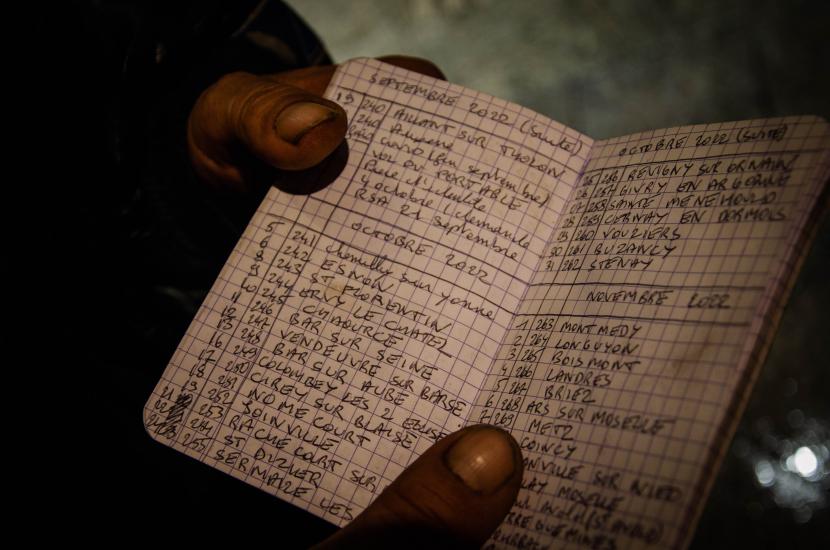 SEPTEMBRE 2022 (suite)
19 240 AILLANT SUR THOLON
240 Auxerre
septembre)
VOL DU PORTABLE
Piece d'identite
4 octobre 1 demande
RSA 21 septembre
OCTOBRE 2022
5 241 chemilly sur yonne
6 242 ESNON
8 243 ST FLORENTIN
9 244 ERVY LE CHATEL
10 245 CHAOURCE
11 246 BAR SUR SEINE
12 247 VENDEUVRE SUR BARSE
13 248 BAR SUR AUBE
16 249 COLOMBEY LES 2 EGLISES
17 250 CIREY SUR BLAISE
18 251 NOMECOURT
19 252 JOINVILLE
253 RACHECOURT SUR
254 ST DIZIER
255 SERMAIZE LES
OCTOBRE 2022 (SUITE)
25 256 REVIGNY SUR ORNAIN
26 257 GIVRY EN ARGONNE
27 258 SAINTE MENEHOULD
28 259 CERNAY EN DORMOIS
29 260 VOUZIERS
30 261 BUZANCY
31 262 STENAY
NOVEMBRE 2022
1 263 MONTMEDY
2 264 LONGUYON
3 265 BOISMONT
4 266 LANDRES
5 267 BRIEZ
6 268 ARS SUR MOSELLE
7 269 METZ
COINCY
ONVILLE SUR NIED
LAY MOSELLE